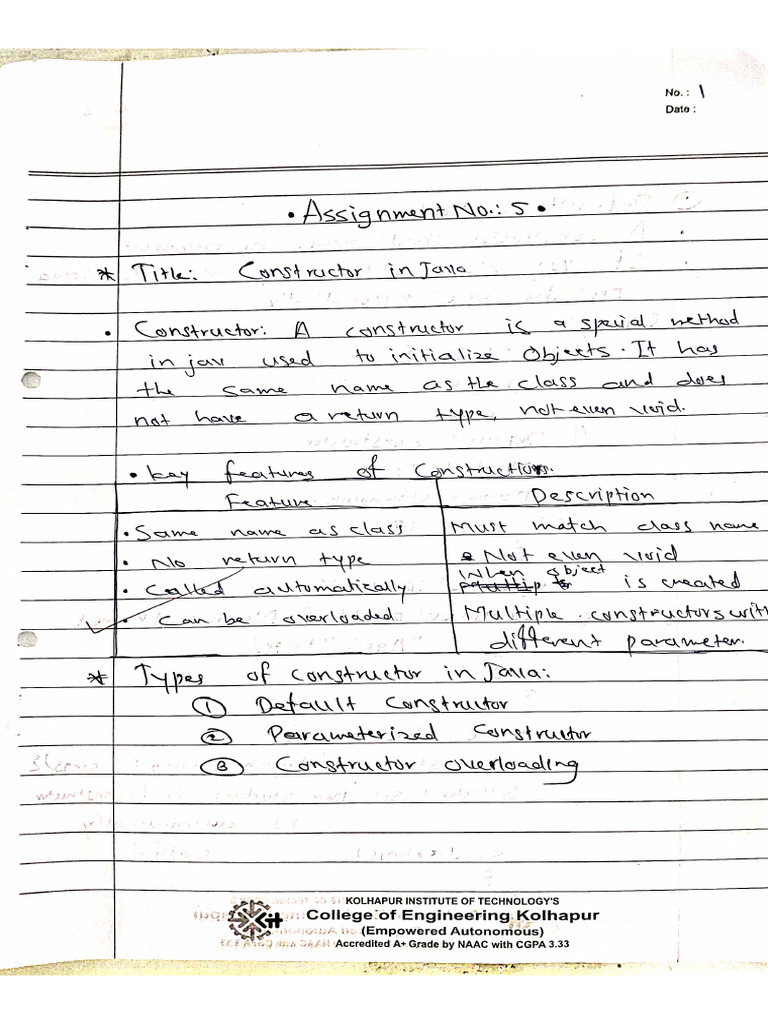 No. : 1
Date :
• Assignment No.: 5 •
* Title: Constructor in Java
• Constructor: A constructor is a special method
in jav used to initialize Objects. It has
the same name as the class and does
not have a return type, not even void.
• Key features of Constructors.
Feature Description
• Same name as class Must match class name
• No return type • Not even void
• Called automatically When object is created
• Can be overloaded Multiple constructors with
different parameter.
* Types of constructor in Java:
① Default Constructor
② Parameterized Constructor
③ Constructor overloading
KOLHAPUR INSTITUTE OF TECHNOLOGY'S
College of Engineering Kolhapur
(Empowered Autonomous)
Accredited A+ Grade by NAAC with CGPA 3.33